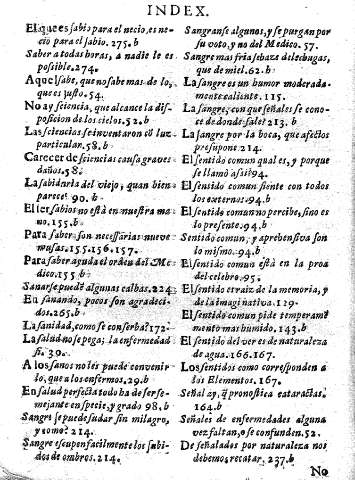 INDEX.
El que es sabio para el necio, es necio para el sabio. 275. b
Saber a todas horas, a nadie le es
possible. 274.
Aquel sabe, que no sabe mas de lo,
que es justo. 54.
No ay sciencia, que alcance la disposicion
de los cielos. 52. b
Las sciencias se inventaron cõ luz
particular. 58. b
Carecer de sciencias causa graves
daños. 58.
La sabiduria del viejo, quan bien
parece! 90. b
El ser sabios no está en nuestra mano.
155. b
Para saber son necessarias nueve
musas. 155. 156. 157.
Para saber ayuda el orden del Medico.
155. b
Sanar se puedẽ algunas calbas. 224
En sanando, pocos son agradecidos.
265. b
La sanidad, como se conserba? 172.
La salud no se pega; la enfermedad
si. 39.
A los sanos no les puede convenir
lo, que a los enfermos. 29. b
En salud perfecta todo ha de ser semejante
en specie, y grado 98. b
Sangre se puede sudar sin milagro,
y como? 214.
Sangre escupen facilmente los subidos
de ombros. 214.
Sangranse algunos, y se purgan por
su voto, y no del Medico. 57.
Sangre mas fria se haze de lechugas,
que de miel. 62. b
La sangre es un humor moderadamente
caliente. 115.
La sangre, con que señales se conoce
de donde sale? 213. b
La sangre por la boca, que afectos
presupone. 214.
El sentido comun qual es, y porque
se llamò assi? 94.
El sentido comun siente con todos
los externos. 94. b
El sentido comun no percibe, sino es
lo presente. 94. b
Sentido comun, y aprehensiva son
lo mismo. 94. b
El sentido comun está en la proa
del celebro. 95.
El sentido es raiz de la memoria, y
de la imaginativa. 119.
El sentido comun pide temperamento
mas humido. 143. b
El sentido del ver es de naturaleza
de agua. 166. 167.
Los sentidos como corresponden a
los Elementos. 167.
Señal ay, q̃ pronostica cataratas.
164. b
Señales de enfermedades alguna
vez faltan, o se confunden. 52.
De señalados por naturaleza nos
debemos recatar. 237. b
No